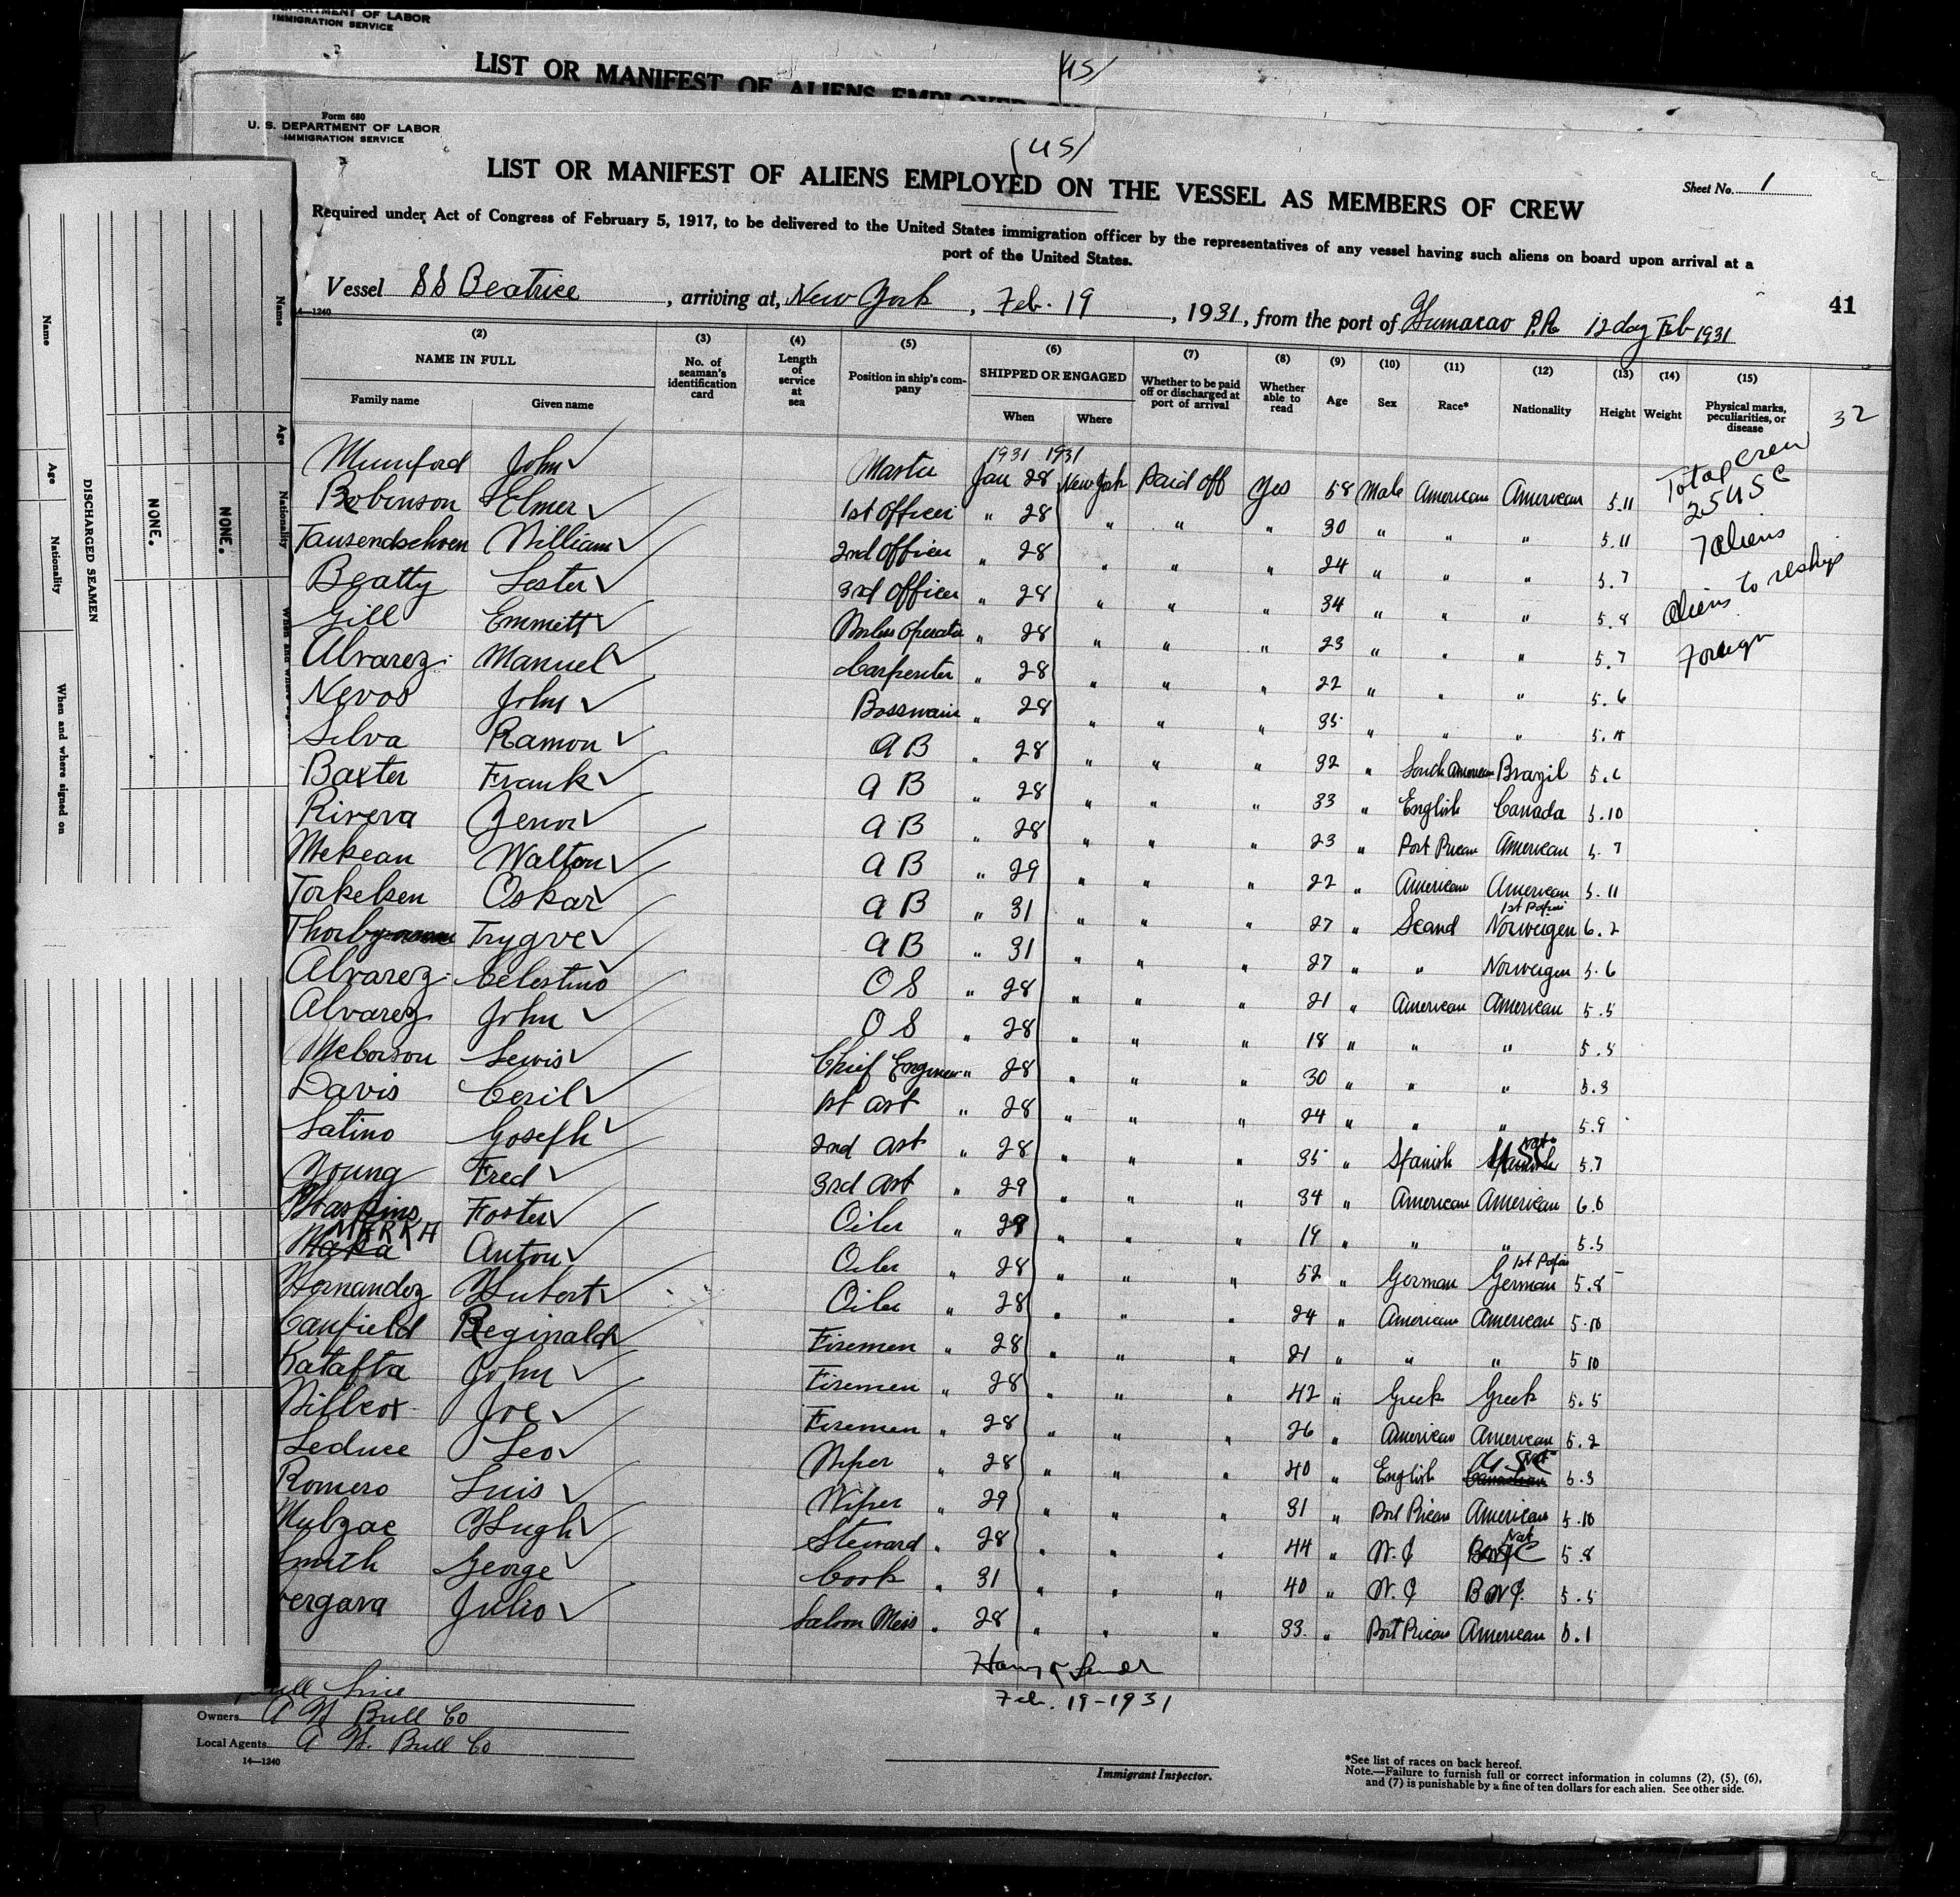 DEPARTMENT OF LABOR
IMMIGRATION SERVICE
LIST OR MANIFEST OF ALIENS EMPLOYED
(US)
Form 680
U. S. DEPARTMENT OF LABOR
IMMIGRATION SERVICE
(US)
LIST OR MANIFEST OF ALIENS EMPLOYED ON THE VESSEL AS MEMBERS OF CREW
Sheet No. 1
Required under Act of Congress of February 5, 1917, to be delivered to the United States immigration officer by the representatives of any vessel having such aliens on board upon arrival at a
port of the United States.
Vessel SS Beatrice, arriving at, New York, Feb. 19, 1931, from the port of Humacao P.R. 12 day Feb 1931
41
14—1240
(2) (3) (4) (5) (6) (7) (8) (9) (10) (11) (12) (13) (14) (15)
NAME IN FULL No. of seaman's identification card Length of service at sea Position in ship's company SHIPPED OR ENGAGED Whether to be paid off or discharged at port of arrival Whether able to read Age Sex Race* Nationality Height Weight Physical marks, peculiarities, or disease
Family name Given name When Where
32
1931 1931
Mumford John Master Jan 28 New York Paid off Yes 58 Male American American 5.11
Robinson Elmer 1st Officer " 28 " " " 30 " " " 5.11
Tausendschoen William 2nd Officer " 28 " " " 24 " " " 5.7
Beatty Lester 3rd Officer " 28 " " " 34 " " " 5.8
Gill Emmett Operator " 28 " " " 23 " " " 5.7
Alvarez Manuel Carpenter " 28 " " " 22 " " " 5.6
Nevos John Bosswain " 28 " " " 35 " " "
Silva Ramon A B " 28 " " " 32 " South American Brazil 5.6
Baxter Frank A B " 28 " " " 33 " English Canada 5.10
Rivera Genor A B " 28 " " " 23 " Port Rican American 5.7
Mckean Walton A B " 29 " " " 22 " American American 5.11
Torkelsen Oskar A B " 31 " " " 27 " Scand 1st Papers Norweigen 6.2
Trygve A B " 31 " " " 27 " " Norweigen 5.6
Alvarez Celestino O S " 28 " " " 21 " American American 5.5
Alvarez John O S " 28 " " " 18 " " " 5.5
Lewis Chief Engineer " 28 " " " 30 " " " 5.3
Davis Cecil 1st Ast " 28 " " " 24 " " " 5.9
Latino Joseph 2nd Ast " 28 " " " 35 " Spanish Nat. USC 5.7
Young Fred 3rd Ast " 29 " " " 34 " American American 6.0
Haskins Foster Oiler " 29 " " " 19 " " " 5.5
MARKA Anton Oiler " 28 " " " 52 " German 1st Papers German 5.8
Hernandez Hubert Oiler " 28 " " " 24 " American American 5.10
Canfield Reginald Firemen " 28 " " " 21 " " " 5 10
Katafta John Firemen " 28 " " " 42 " Greek Greek 5.5
Joe Firemen " 28 " " " 26 " American American 5.2
Leduce Leo Wiper " 28 " " " 40 " English Canadian USC Nat 5.3
Romero Luis Wiper " 29 " " " 31 " Port Rican American 5.10
Mulzac Hugh Steward " 28 " " " 44 " W.I Nat 5.8
Smith George Cook " 31 " " " 40 " W.I B W I. 5.5
Vergara Julio Saloon Mess " 28 " " " 33 " Port Rican American
Total crew
25 USC
7 aliens
aliens to reship
Foreign
Feb. 19-1931
Bull Line
Owners A H Bull Co
Local Agents A H. Bull Co
14—1240
Immigrant Inspector.
*See list of races on back hereof.
Note.—Failure to furnish full or correct information in columns (2), (5), (6),
and (7) is punishable by a fine of ten dollars for each alien. See other side.
Name
Age
Nationality
When and where signed on
DISCHARGED SEAMEN
NONE.
NONE.
Name
Age
Nationality